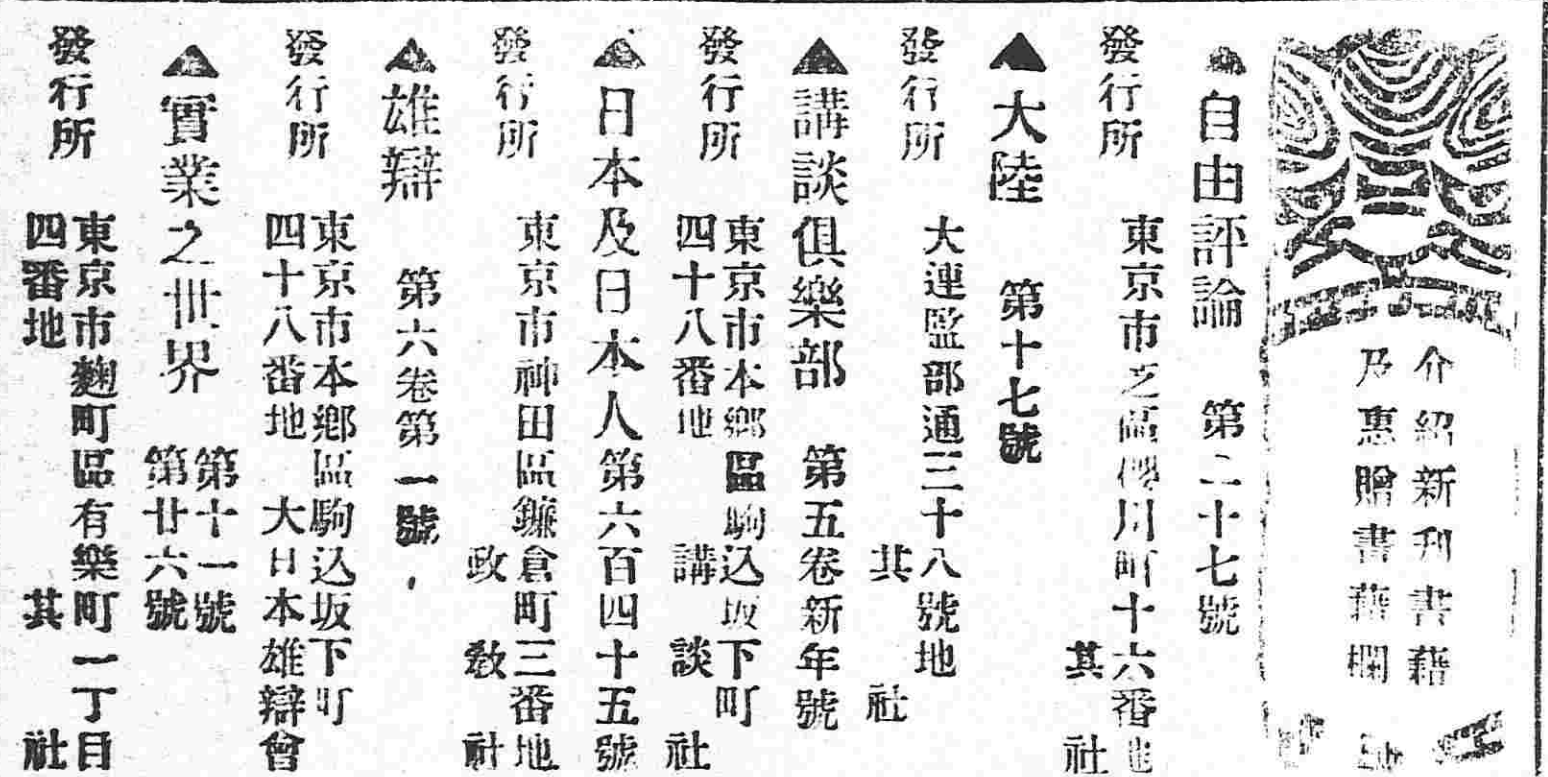 介紹新刊書藉
乃惠贈書藉欄
▲自由評論 第二十七號
發行所 東京市芝區櫻川町十六番地
其社
▲大陸 第十七號
發行所 大連監部通三十八號地
其社
▲講談俱樂部 第五卷新年號
發行所 東京市本鄉區駒込坂下町
四十八番地 講談社
▲日本及日本人 第六百四十五號
發行所 東京市神田區鎌倉町三番地
政敎社
▲雄辯 第六卷第一號
發行所 東京市本鄉區駒込坂下町
四十八番地 大日本雄辯會
▲實業之世界 第十一號
第廿六號
發行所 東京市麴町區有樂町一丁目
四番地 其社